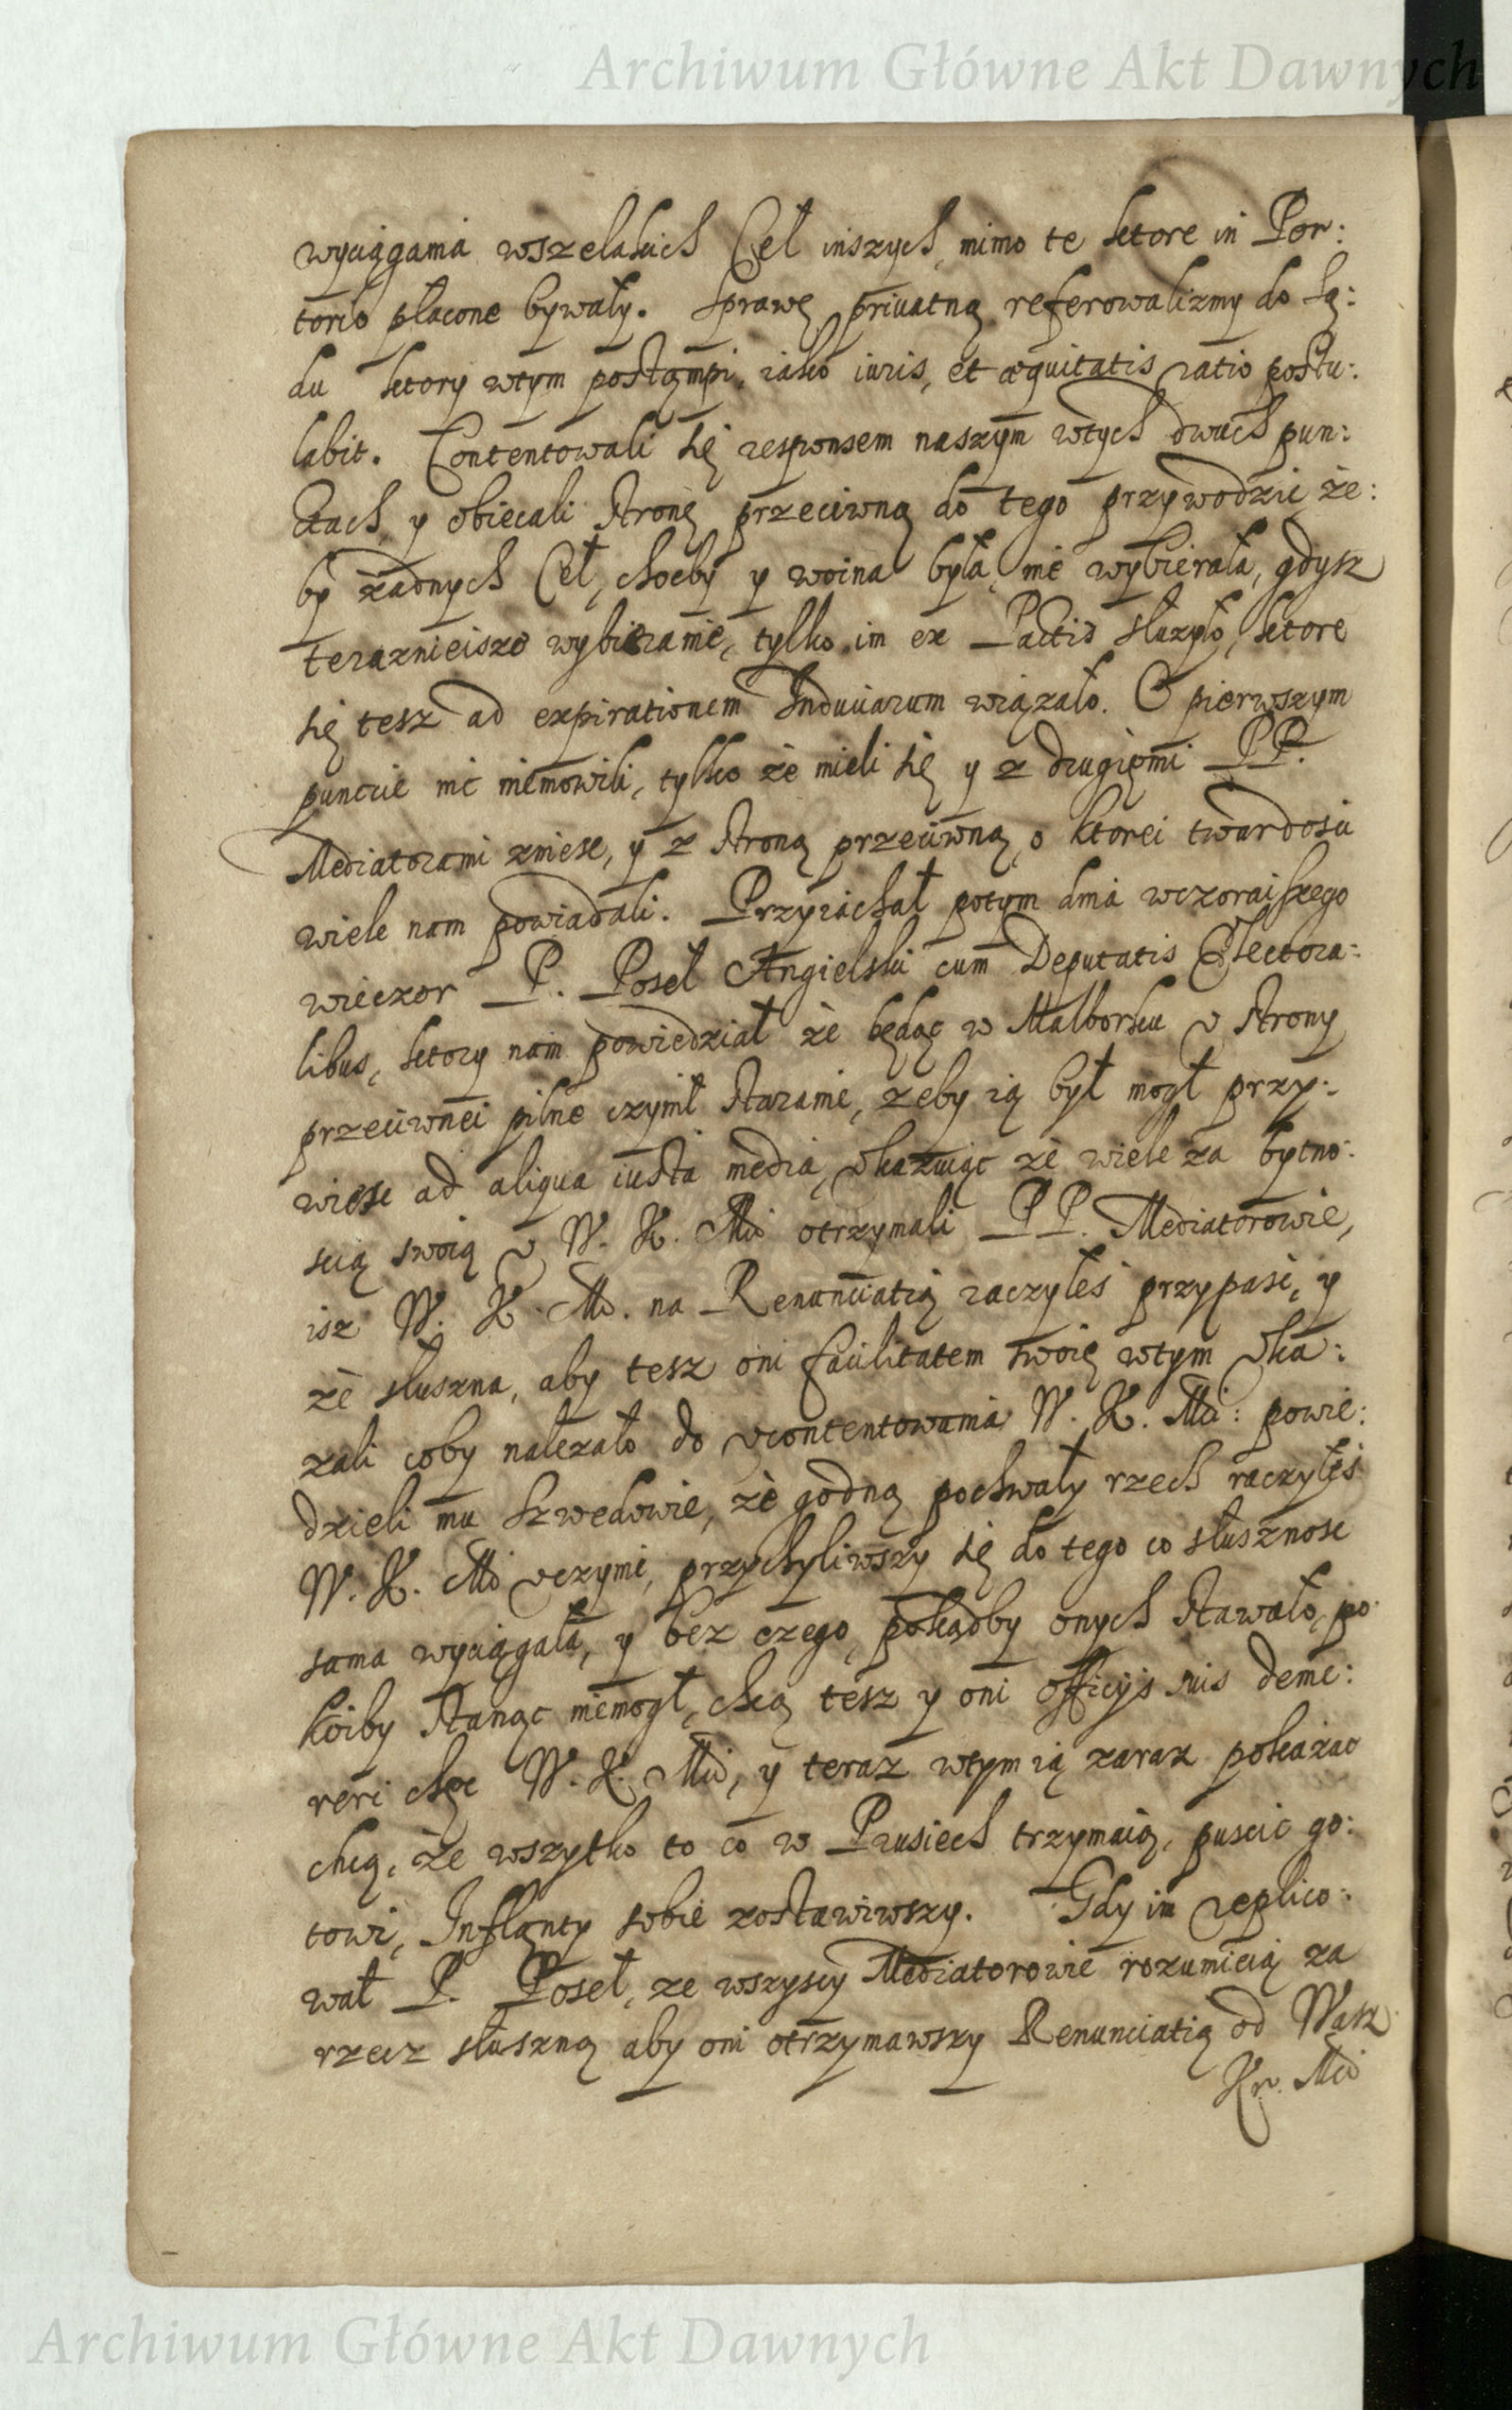 Archiwum Główne Akt Dawnych
wyciągania wszelakich Ceł inszych, mimo te ktore in Por:
torio płacone bywały. Sprawę priuatną referowalizmy do Są:
du ktory wtym postąmpi, iako iuris, et æquitatis ratio postu:
labit. Contentowali się responsem naszym wtych dwuch pun:
ctach, y obiecali stronę przeciwną do tego przywodzic że:
by żadnych Ceł, choćby y woina była, nie wybierała, gdysz
teraznieisze wybieranie, tylko im ex Pactis służyło, ktore
się tesz ad expirationem Induciarum wiązało. O pierwszym
puncie nic niemowili, tylko że mieli się y z drugięmi PP.
Mediatorami zniesc, y z stroną przeciwną, o ktorei twardosci
wiele nam powiadali. Przyiachał potym dnia wczoraiszego
wieczor P. Poseł Angielski cum Deputatis Electora:
libus, ktory nam powiedział że będąc w Malborku v strony
przeciwnei pilne czynił staranie, zeby ią był mogł przy:
wiesc ad aliqua iusta media, vkazuiąc że wiele za bytno:
scią swoią v W. K. Mci otrzymali PP. Mediatorowie,
isz W. K. M. na Renunciatią raczyłes przypasc, y
że słuszna, aby tesz oni facilitatem swoię wtym vka:
zali coby należało do vcontentowania W. K. Mci: powie:
dzieli mu Szwedowie, że godną pochwały rzech raczyłes
W. K. Mci vczynic, przychyliwszy się do tego co słusznosc
sama wyciągała, y bez czego, pokądby onych stawało, po:
koiby stanąc niemogł, chcą tesz y oni officijs suis deme:
reri chęc W. K. Mci, y teraz wtym ią zaraz pokazac
chcą, że wszytko to co w Prusiech trzymaią, puscic go:
towi, Inflanty sobie zostawiwszy. Gdy im replico:
wał P. Poseł, ze wszyscy Mediatorowie rozumieią za
rzecz słuszną aby oni otrzymawszy Renunciatią od Wasz
Kr. Mci
Archiwum Główne Akt Dawnych